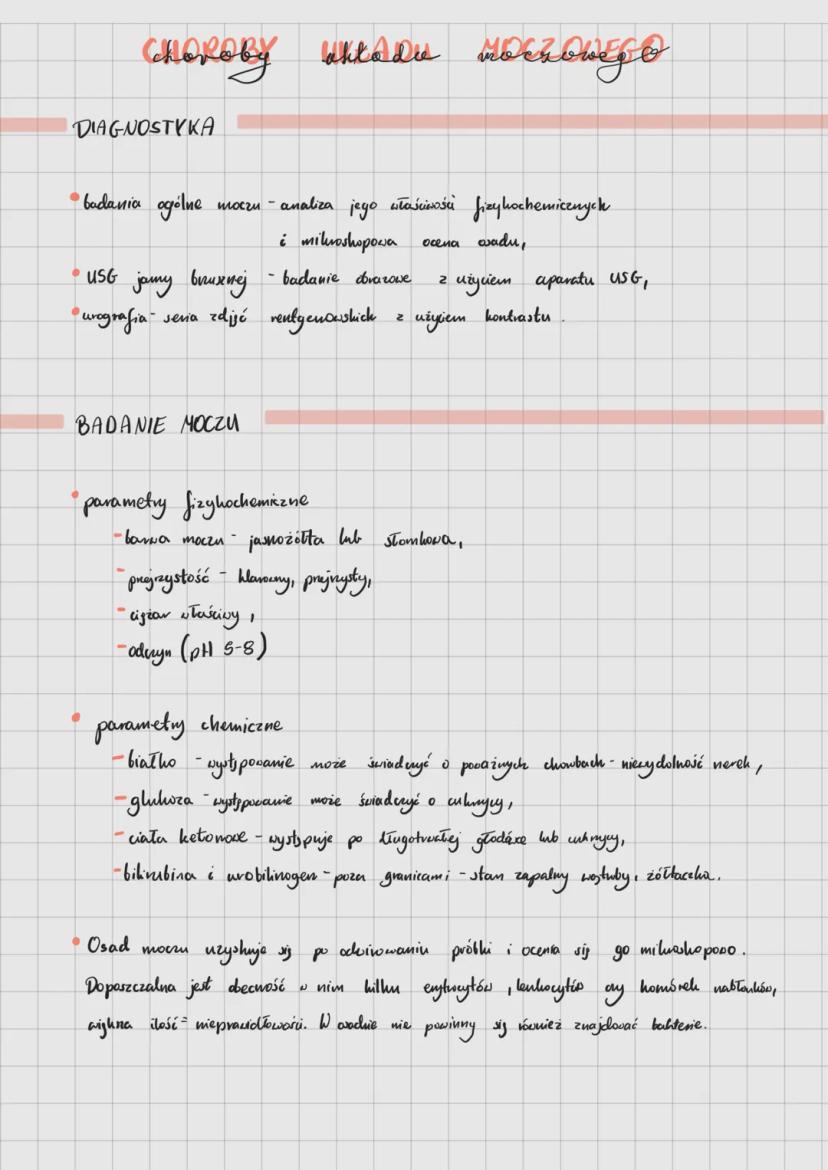 CHOROBY UKŁADU MOCZOWEGO
choroby układu moczowego
DIAGNOSTYKA
• badania ogólne moczu - analiza jego właściwości fizykochemicznych
i mikroskopowa ocena osadu,
• USG jamy brzusznej - badanie obrazowe z użyciem aparatu USG,
• urografia - seria zdjęć rentgenowskich z użyciem kontrastu.
BADANIE MOCZU
• parametry fizykochemiczne
- barwa moczu - jasnożółta lub słomkowa,
- przejrzystość - klarowny, przejrzysty,
- ciężar właściwy,
- odczyn (pH 5-8)
• parametry chemiczne
- białko - występowanie może świadczyć o poważnych chorobach - niewydolność nerek,
- glukoza - występowanie może świadczyć o cukrzycy,
- ciała ketonowe - występuje po długotrwałej głodówce lub cukrzycy,
- bilirubina i urobilinogen - poza granicami - stan zapalny wątroby, żółtaczka.
• Osad moczu uzyskuje się po odwirowaniu próbki i ocenia się go mikroskopowo.
Dopuszczalna jest obecność w nim kilku erytrocytów, leukocytów czy komórek nabłonków,
większa ilość = nieprawidłowości. W osadzie nie powinny się również znajdować bakterie.